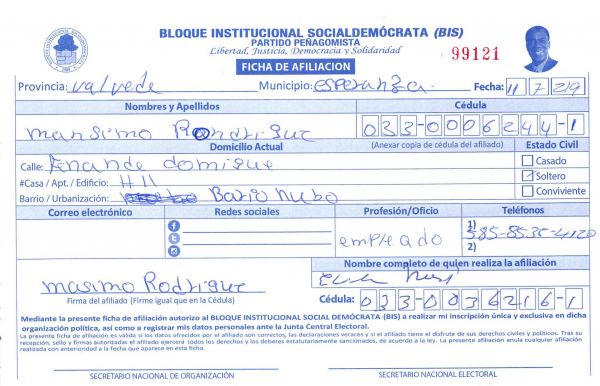 BLOQUE INSTITUCIONAL SOCIALDEMÓCRATA (BIS)
PARTIDO PEÑAGOMISTA
Libertad, Justicia, Democracia y Solidaridad
99121
FICHA DE AFILIACION
Provincia: valvede Municipio: esperanza. Fecha: 11 7 219
Nombres y Apellidos Cédula
mansimo Rondrigue 033-0006244-1
Domicilio Actual (Anexar copia de cédula del afiliado) Estado Civil
Calle: Fenande domigue Casado
#Casa / Apt. / Edificio: H 11 Soltero
Barrio / Urbanización: Bario nubo Conviviente
Correo electrónico Redes sociales Profesión/Oficio Teléfonos
empleado 1) 585-8535-4120
2)
Nombre completo de quien realiza la afiliación
masimo Rodrigue
Firma del afiliado (Firme igual que en la Cédula) Cédula: 033-0036216-1
Mediante la presente ficha de afiliación autorizo al BLOQUE INSTITUCIONAL SOCIAL DEMÓCRATA (BIS) a realizar mi inscripción única y exclusiva en dicha
organización política, así como a registrar mis datos personales ante la Junta Central Electoral.
La presente ficha de afiliación es válida si los datos ofrecidos por el afiliado son correctos, las declaraciones veraces y si el afiliado tiene el disfrute de sus derechos civiles y políticos. Tras su
recepción, sello y firmas autorizadas el afiliado ejercerá todos los derechos y los deberes estatutariamente sancionados, de acuerdo a la ley. La presente afiliación anula cualquier afiliación
realizada con anterioridad a la fecha que aparece en esta ficha.
SECRETARIO NACIONAL DE ORGANIZACIÓN SECRETARIO NACIONAL ELECTORAL